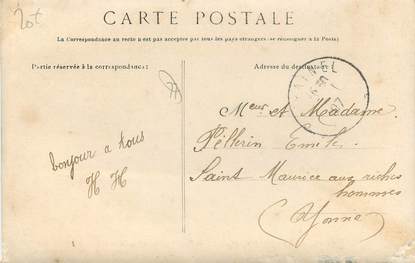 20t
CARTE POSTALE
La Correspondance au recto n'est pas acceptée par tous les pays étrangers (se renseigner à la Poste)
Partie réservée à la correspondance:
Adresse du destinataire:
bonjour a tous
H H
Meur et Madame
Pellerin Emile
Saint Maurice aux riches
hommes
(Yonne)